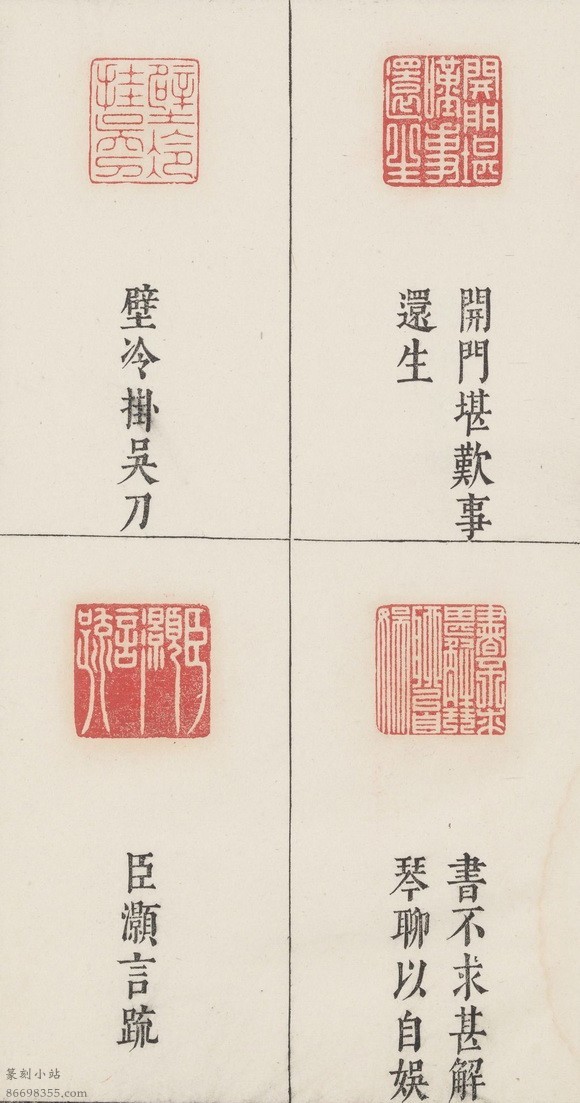 開門堪歎事
還生
壁冷掛吳刀
書不求甚解
琴聊以自娛
臣灝言疏
篆刻小站
86698355.com